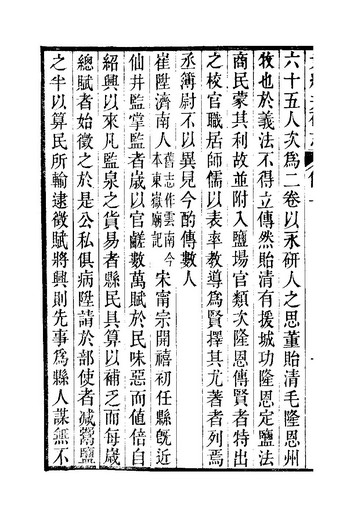 六十五人次爲二卷以永研人之思董貽清毛隆恩州
牧也於義法不得立傳然貽清有援城功隆恩定鹽法
商民蒙其利故並附入鹽場官類次隆恩傳賢者特出
之校官職居師儒以表率教導爲賢擇其尤著者列焉
丞簿尉不以異見今酌傳數人
崔陞濟南人舊志作雲南今本東嶽廟記宋甯宗開禧初任縣旣近
仙井監掌監者歲以官鹺數萬賦於民味惡而値倍自
紹興以來凡監泉之貨易者縣民具算以補之而每歲
總賦者始徵之於是公私俱病陞請於部使者減鬻鹽
之半以算民所輸逮徵賦將興則先事爲縣人謀無不